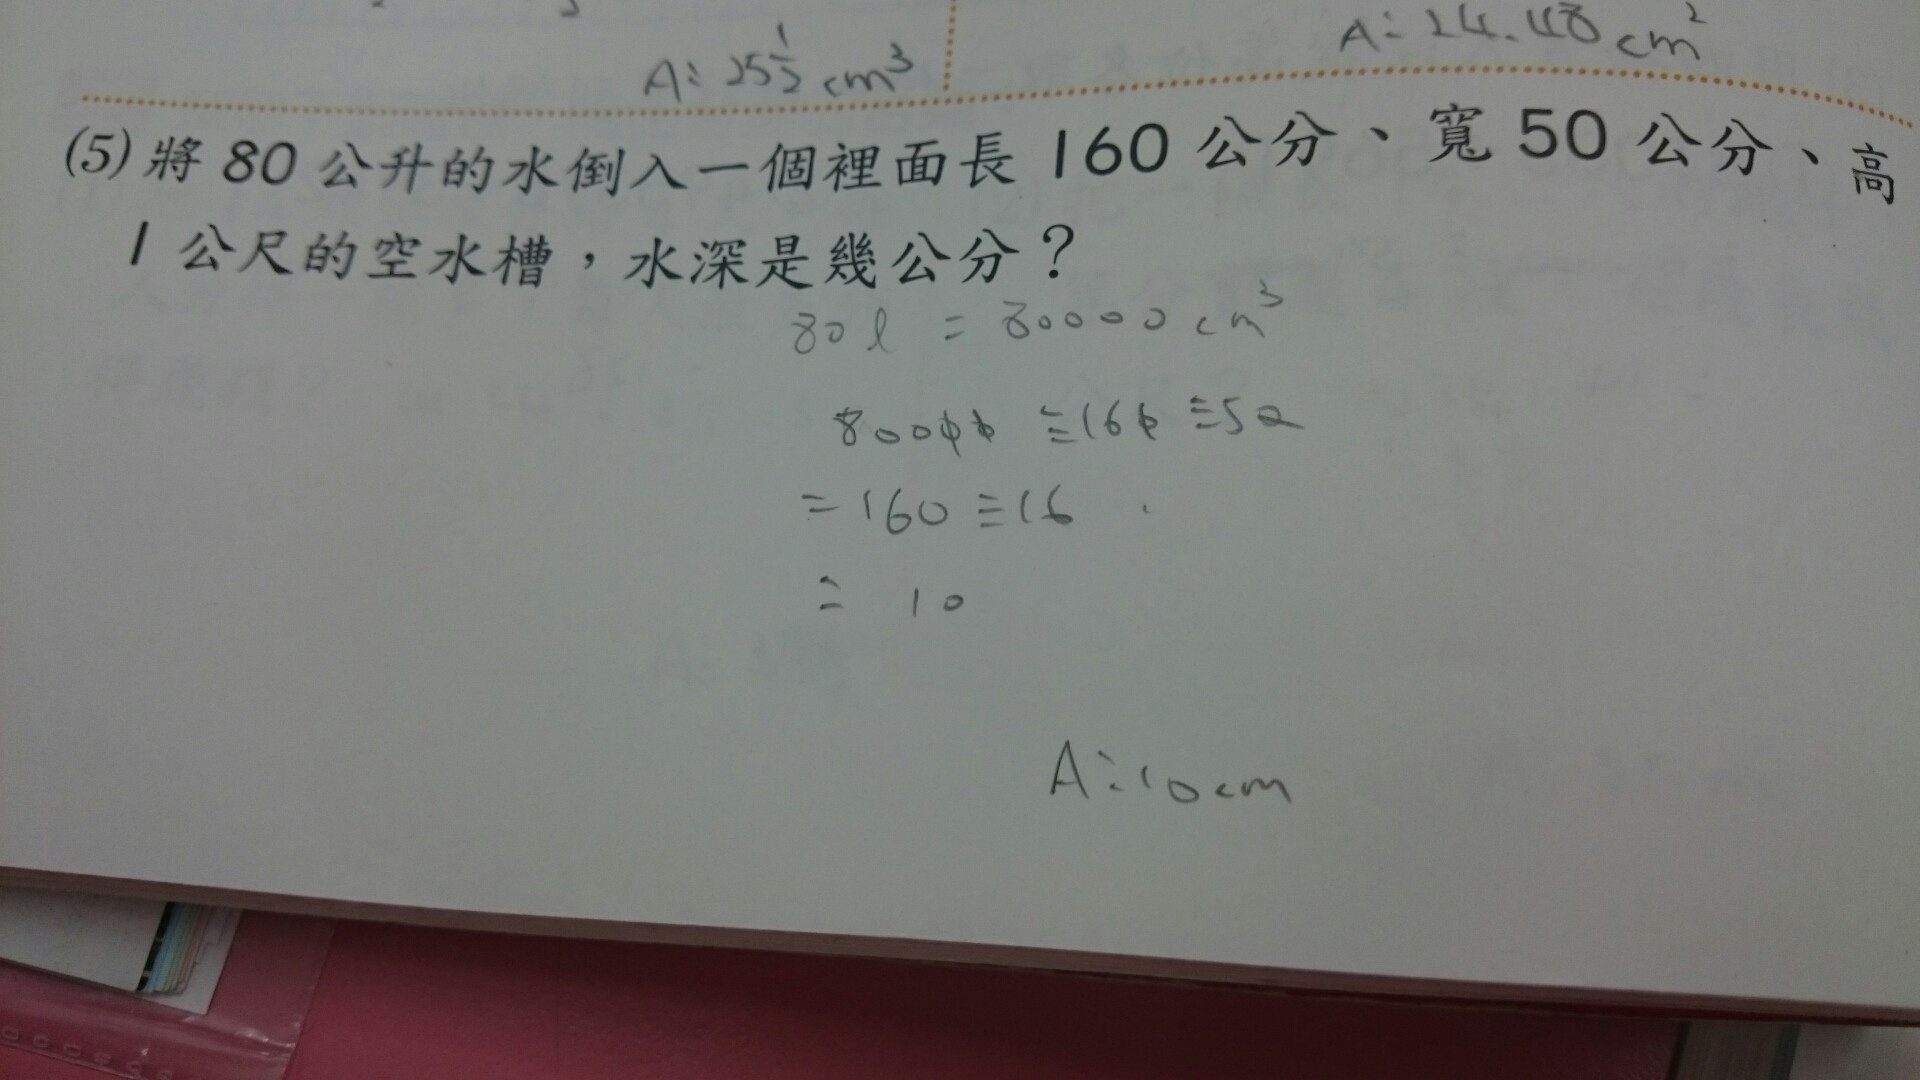 A: 25 1/2 cm³
A: 24.48 cm²
(5) 將 80 公升的水倒入一個裡面長 160 公分、寬 50 公分、高
1 公尺的空水槽，水深是幾公分？
80 l = 80000 cm³
80000 ÷ 160 ÷ 50
= 160 ÷ 16
= 10
A: 10 cm